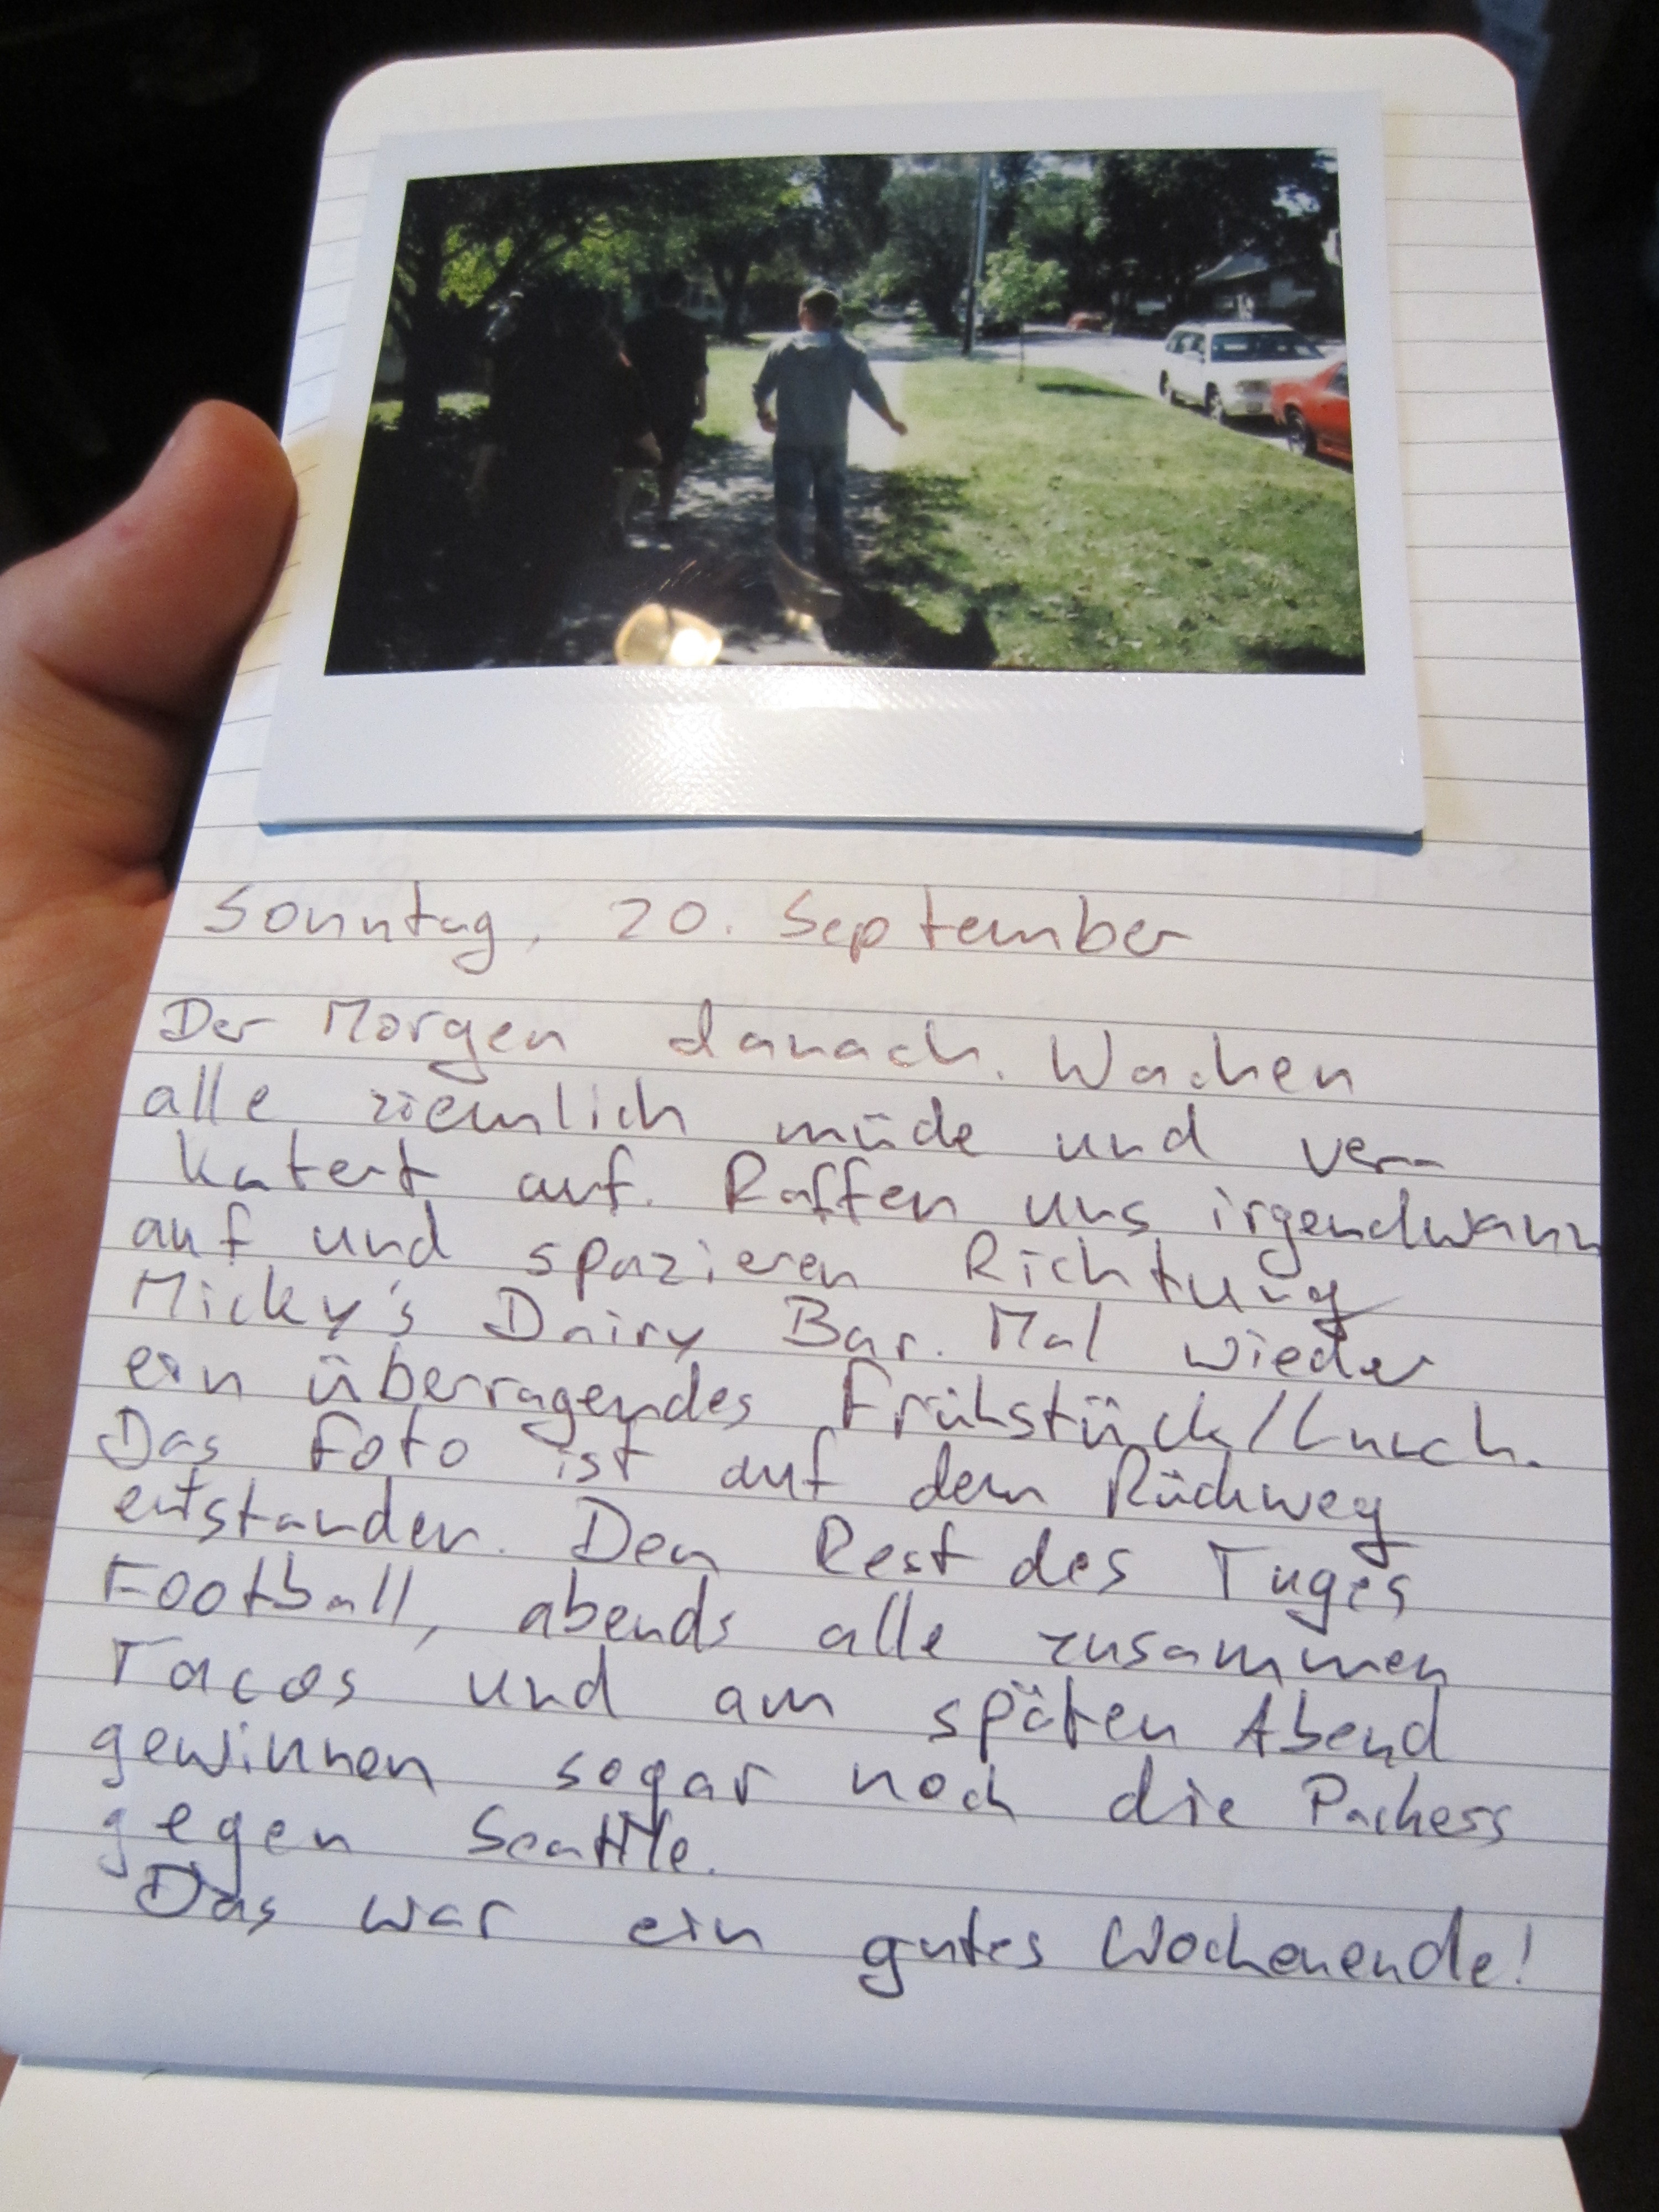 Sonntag, 20. September
Der Morgen danach. Wachen
alle ziemlich müde und ver-
katert auf. Raffen uns irgendwann
auf und spazieren Richtung
Micky's Dairy Bar. Mal wieder
ein überragendes Frühstück/Lunch.
Das Foto ist auf dem Rückweg
entstanden. Den Rest des Tages
Football, abends alle zusammen
Tacos und am späten Abend
gewinnen sogar noch die Packers
gegen Seattle.
Das war ein gutes Wochenende!